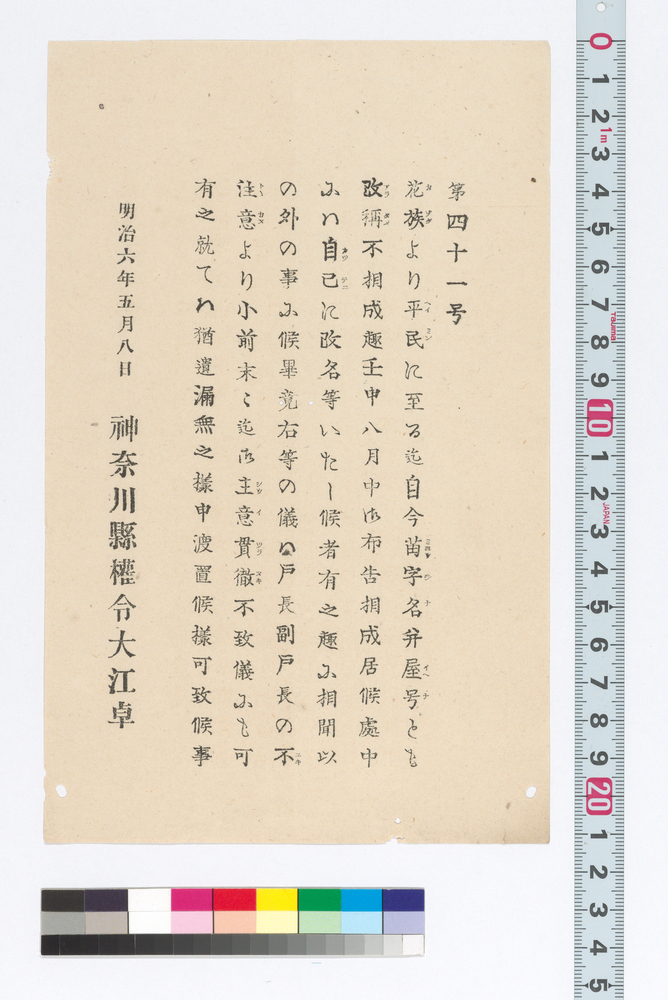 第四十一号
花族より平民に至る迄自今苗字名并屋号とも
改稱不相成趣壬申八月中御布告相成居候處中
にハ自己に改名等いたし候者有之趣に相聞以
の外の事に候畢竟右等の儀ハ戸長副戸長の不
注意より小前末々迄御主意貫徹不致儀にも可
有之就てハ猶遺漏無之様申渡置候様可致候事
明治六年五月八日
神奈川縣權令大江卓
0 1 2 3 4 5 6 7 8 9 10 1 2 3 4 5 6 7 8 9 20 1 2 3 4 5
1m
Tajima
JAPAN